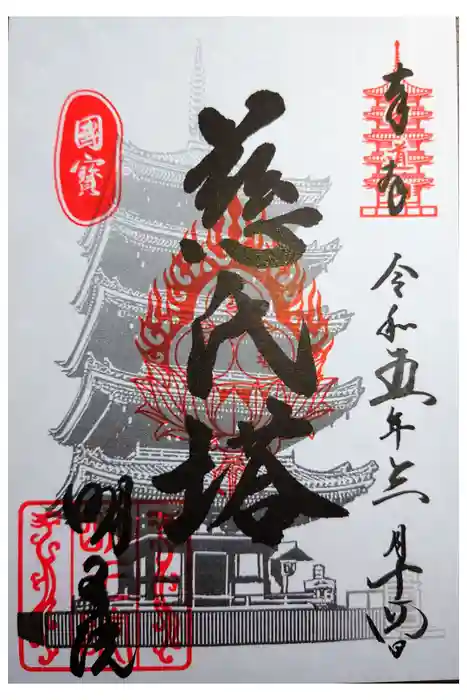 奉拝
令和五年六月十四日
慈氏塔
國寶
明王院